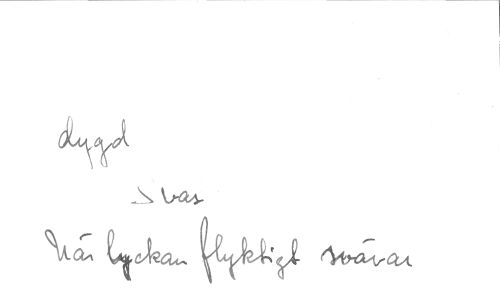 dygd
svas
När lyckan flyktigt svävar